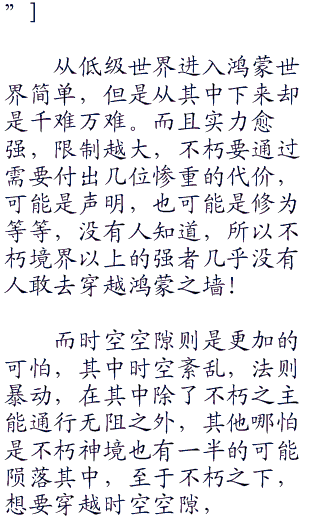 ”]
从低级世界进入鸿蒙世
界简单，但是从其中下来却
是千难万难。而且实力愈
强，限制越大，不朽要通过
需要付出几位惨重的代价，
可能是声明，也可能是修为
等等，没有人知道，所以不
朽境界以上的强者几乎没有
人敢去穿越鸿蒙之墙！
而时空空隙则是更加的
可怕，其中时空紊乱，法则
暴动，在其中除了不朽之主
能通行无阻之外，其他哪怕
是不朽神境也有一半的可能
陨落其中，至于不朽之下，
想要穿越时空空隙，